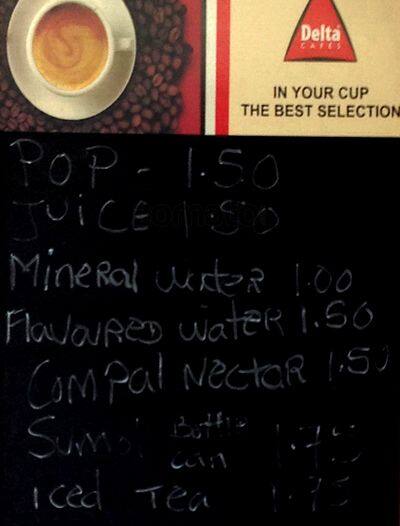 Delta
CAFÉS
IN YOUR CUP
THE BEST SELECTION
POP - 1.50
JUICE 1.50
Mineral Water 1.00
FLAVOURED WATER 1.50
Compal NectaR 1.50
Bottle
Can 1.75
iced Tea 1.75